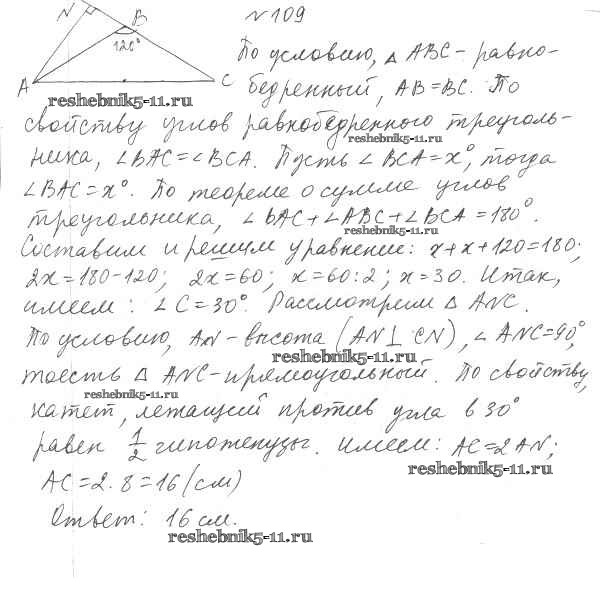 №109
N
B
120°
A
C
По условию, △ ABC - равно-
бедренный, AB=BC. По
reshebnik5-11.ru
свойству углов равнобедренного треуголь-
reshebnik5-11.ru
ника, ∠BAC=∠BCA. Пусть ∠BCA=x°, тогда
∠BAC=x°. По теореме о сумме углов
треугольника, ∠BAC+∠ABC+∠BCA=180°.
reshebnik5-11.ru
Составим и решим уравнение: x+x+120=180;
2x=180-120; 2x=60; x=60:2; x=30. Итак,
имеем: ∠C=30°. Рассмотрим △ ANC.
По условию, AN - высота (AN⊥CN), ∠ANC=90°,
reshebnik5-11.ru
тоесть △ ANC - прямоугольный. По свойству,
reshebnik5-11.ru
катет, лежащий против угла в 30°
равен 1/2 гипотенузы. Имеем: AC=2AN;
reshebnik5-11.ru
AC=2·8=16(см)
Ответ: 16 см.
reshebnik5-11.ru